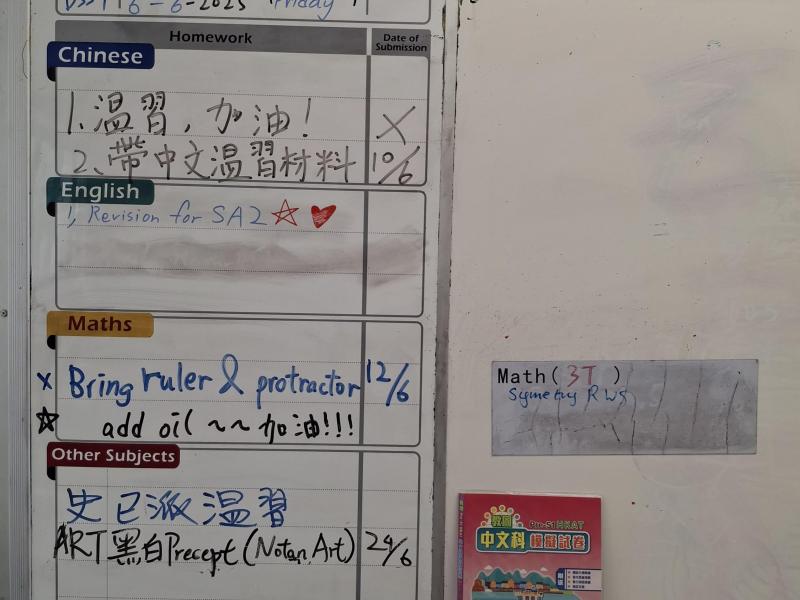 6-6-2025 Friday
Homework
Date of Submission
Chinese
1. 溫習，加油！ X
2、帶中文溫習材料 10/6
English
1, Revision for SA2 ☆ ♥
Maths
x Bring ruler & protractor 12/6
☆ add oil ~~ 加油!!!
Other Subjects
史已派溫習
ART 黑白Precept (Notan Art) 24/6
Math( 3T )
Symetry RWS
教圖
Pre-S1 HKAT
中文科 模擬試卷